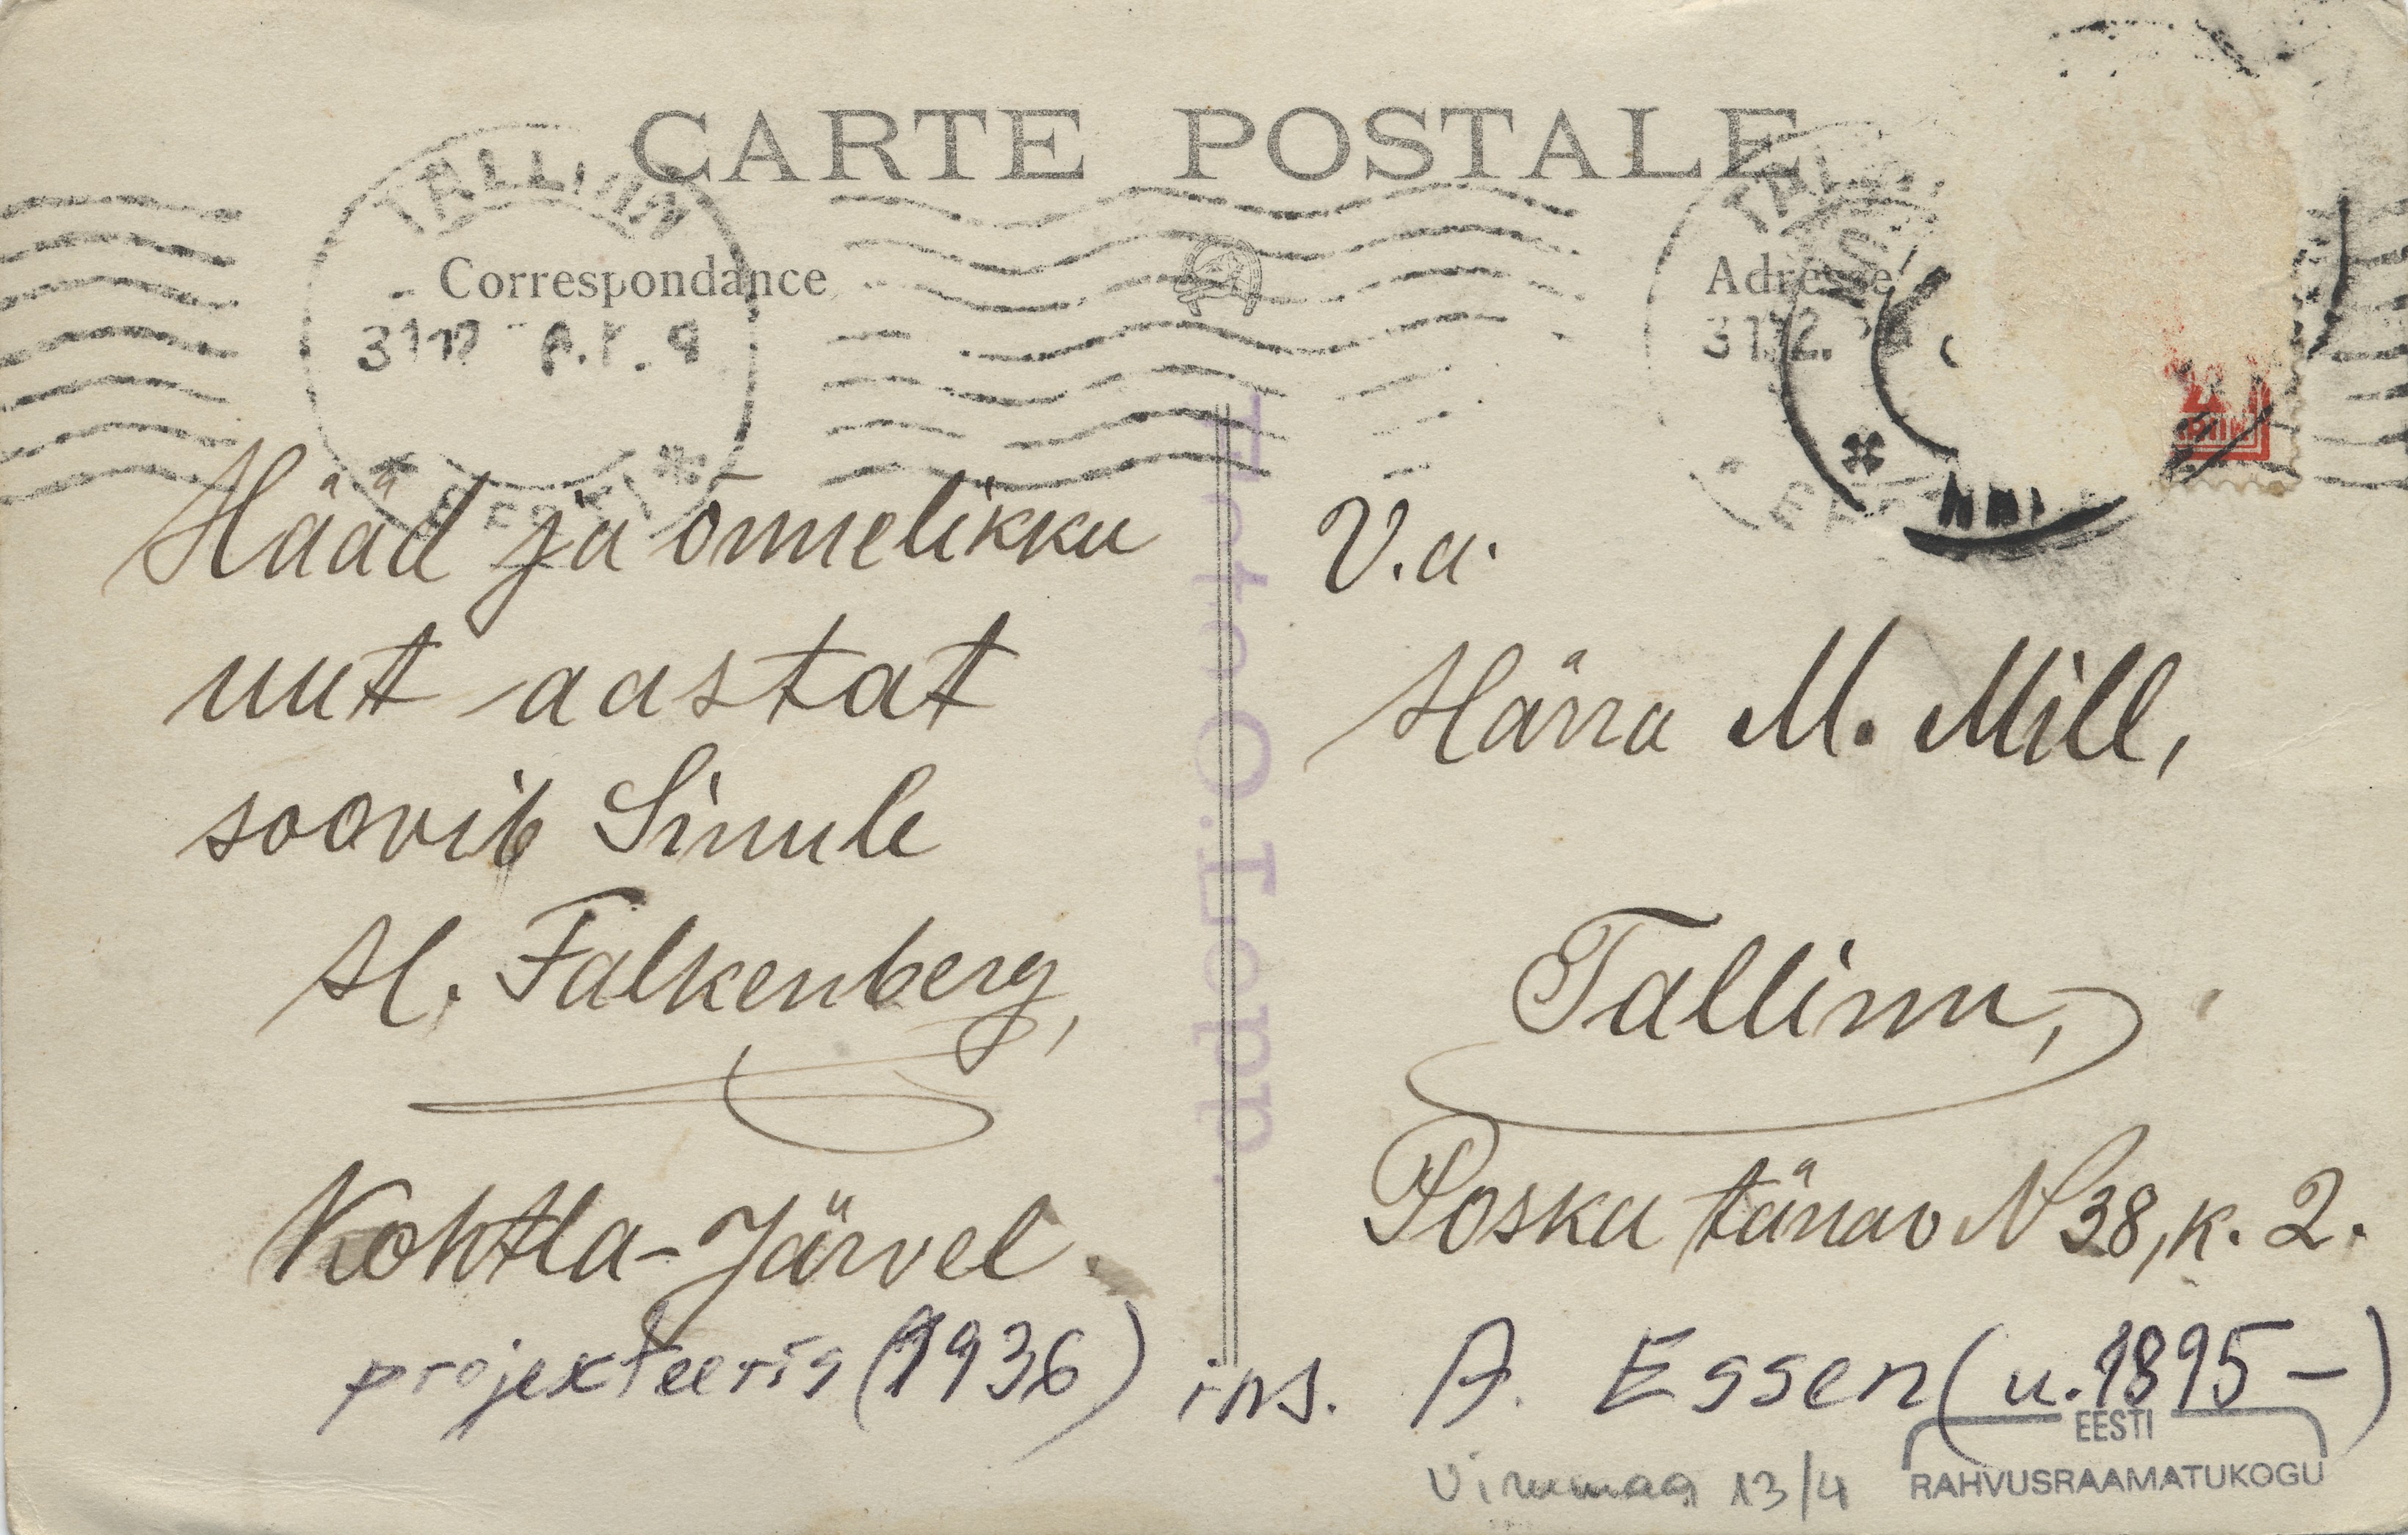 CARTE POSTALE
TALLINN
Correspondance
Adresse
EESTI
Hääd ja õnnelikku
uut aastat
soovib Sinule
H. Falkenberg,
Kohtla-Järvel.
V.a.
Härra M. Mill,
Tallinn,
Poska tänav N 38, k. 2.
Foto O. Lepp.
projekteeris (1936) ins. A. Essen (u. 1895 – )
Virumaa 13/4
EESTI
RAHVUSRAAMATUKOGU